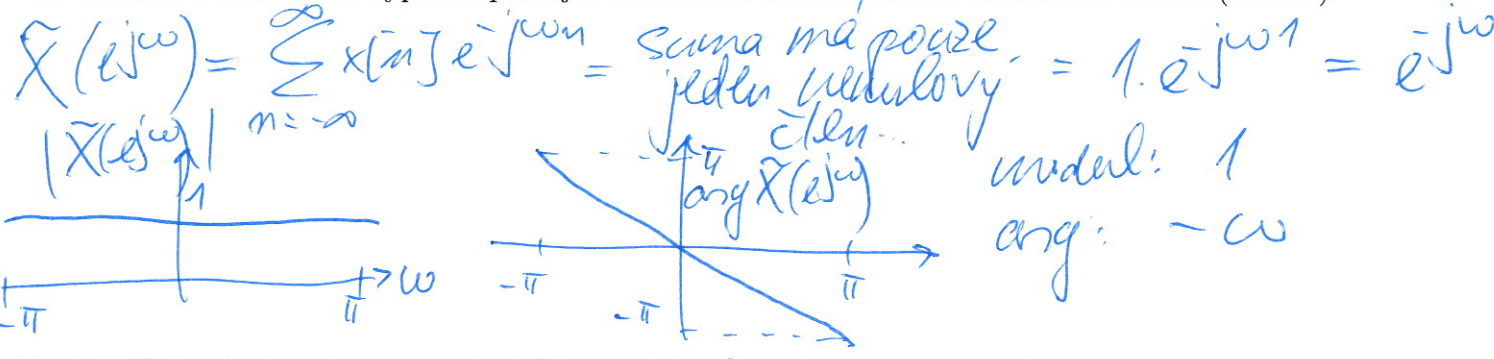 X̃(e^jω) = ∑ x[n] e^-jωn = suma má pouze jeden nenulový člen... = 1.e^-jω1 = e^-jω
n=-∞ ∞
|X̃(e^jω)|
1
-π π ω
π
arg X̃(e^jω)
-π π
-π
modul: 1
arg: -ω